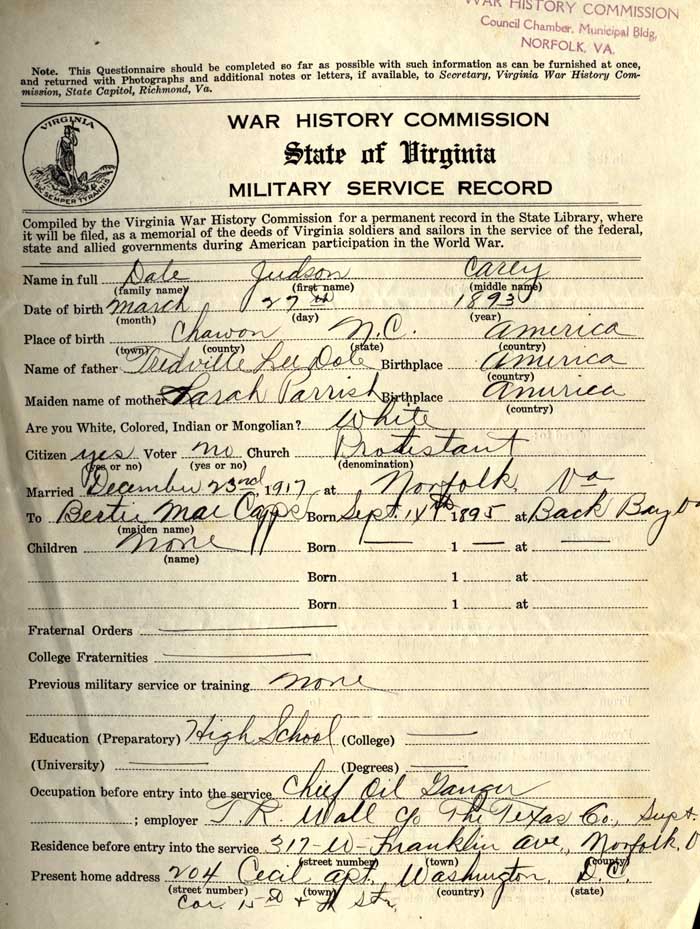 WAR HISTORY COMMISSION
Council Chamber, Municipal Bldg,
NORFOLK, VA.
Note. This Questionnaire should be completed so far as possible with such information as can be furnished at once,
and returned with Photographs and additional notes or letters, if available, to Secretary, Virginia War History Com-
mission, State Capitol, Richmond, Va.
VIRGINIA
SIC SEMPER TYRANNIS
WAR HISTORY COMMISSION
State of Virginia
MILITARY SERVICE RECORD
Compiled by the Virginia War History Commission for a permanent record in the State Library, where
it will be filed, as a memorial of the deeds of Virginia soldiers and sailors in the service of the federal,
state and allied governments during American participation in the World War.
Name in full Dale Judson Carey
(family name) (first name) (middle name)
Date of birth March 27th 1893
(month) (day) (year)
Place of birth Chawon N.C. America
(town) (county) (state) (country)
Name of father Tredville Lee Dale Birthplace America
(country)
Maiden name of mother Sarah Parrish Birthplace America
(country)
Are you White, Colored, Indian or Mongolian? White
Citizen yes Voter no Church Protestant
(yes or no) (yes or no) (denomination)
Married December 23rd, 1917 at Norfolk, Va
To Bertie Mae Capps Born Sept. 14th 1895 at Back Bay Va
(maiden name)
Children None Born — 1 — at —
(name)
Born 1 at
Born 1 at
Fraternal Orders —
College Fraternities —
Previous military service or training none
Education (Preparatory) High School (College) —
(University) — (Degrees) —
Occupation before entry into the service Chief Oil Gauger
; employer T. R. Wall c/o The Texas Co., Supt.
Residence before entry into the service 317-W-Franklin Ave., Norfolk, V
(street number) (town) (county)
Present home address 204 Cecil Apt., Washington, D.C.
(street number) (town) (country) (state)
Cor. 15th & Strs.